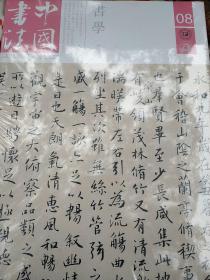 中國書法
書學
08
永和九年
于會稽山陰之蘭亭脩稧
也羣賢畢至少長咸集此地
有領茂林脩竹又有清流
湍暎帶左右引以為流觴曲水
列坐其次雖無絲竹管弦之
盛一觴一詠亦足以暢叙幽情
是日也天朗氣清惠風和暢
觀宇宙之大俯察品類之
以遊目騁懷足以極視